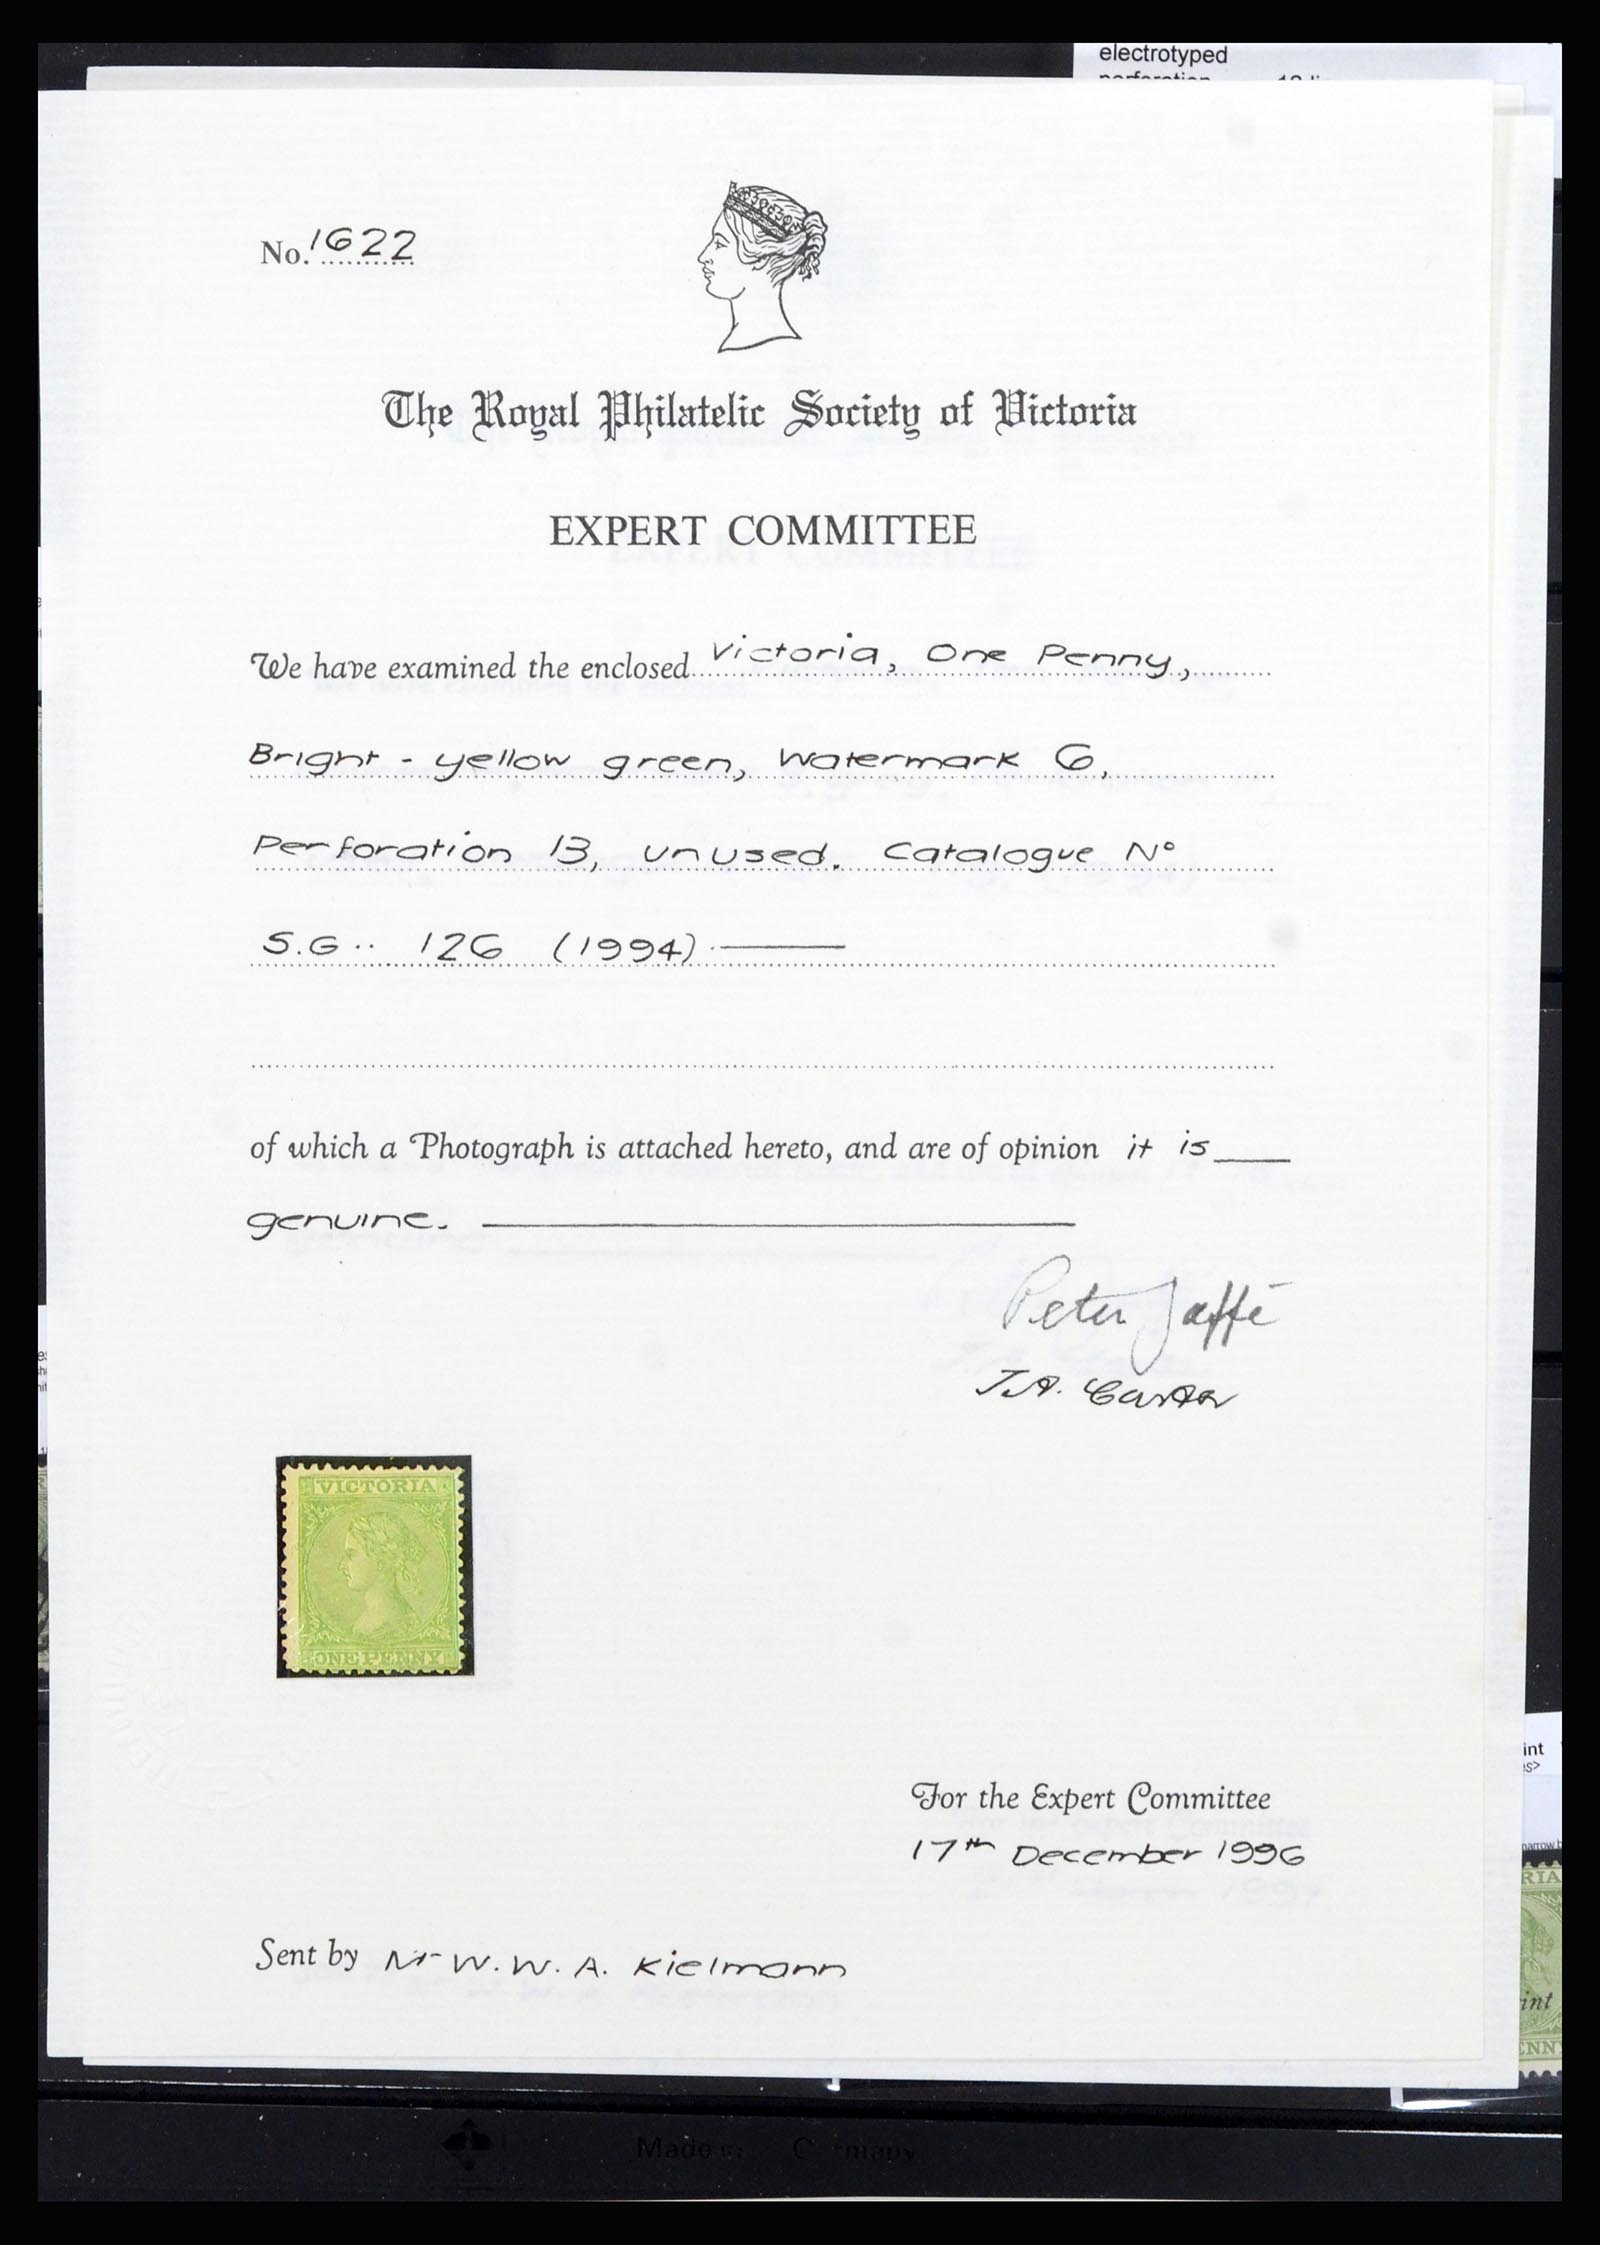 electrotyped
No. 1622
The Royal Philatelic Society of Victoria
EXPERT COMMITTEE
We have examined the enclosed Victoria, One Penny,
Bright - yellow green, Watermark 6,
Perforation 13, unused. Catalogue No
S.G.. 126 (1994)
of which a Photograph is attached hereto, and are of opinion it is
genuine.
Peter Jaffé
J.A. Carter
VICTORIA
ONE PENNY
For the Expert Committee
17th December 1996
Sent by Mr W. W. A. Kielmann
int
s>
narrow b
RIA
int
ENN
Made in Germany